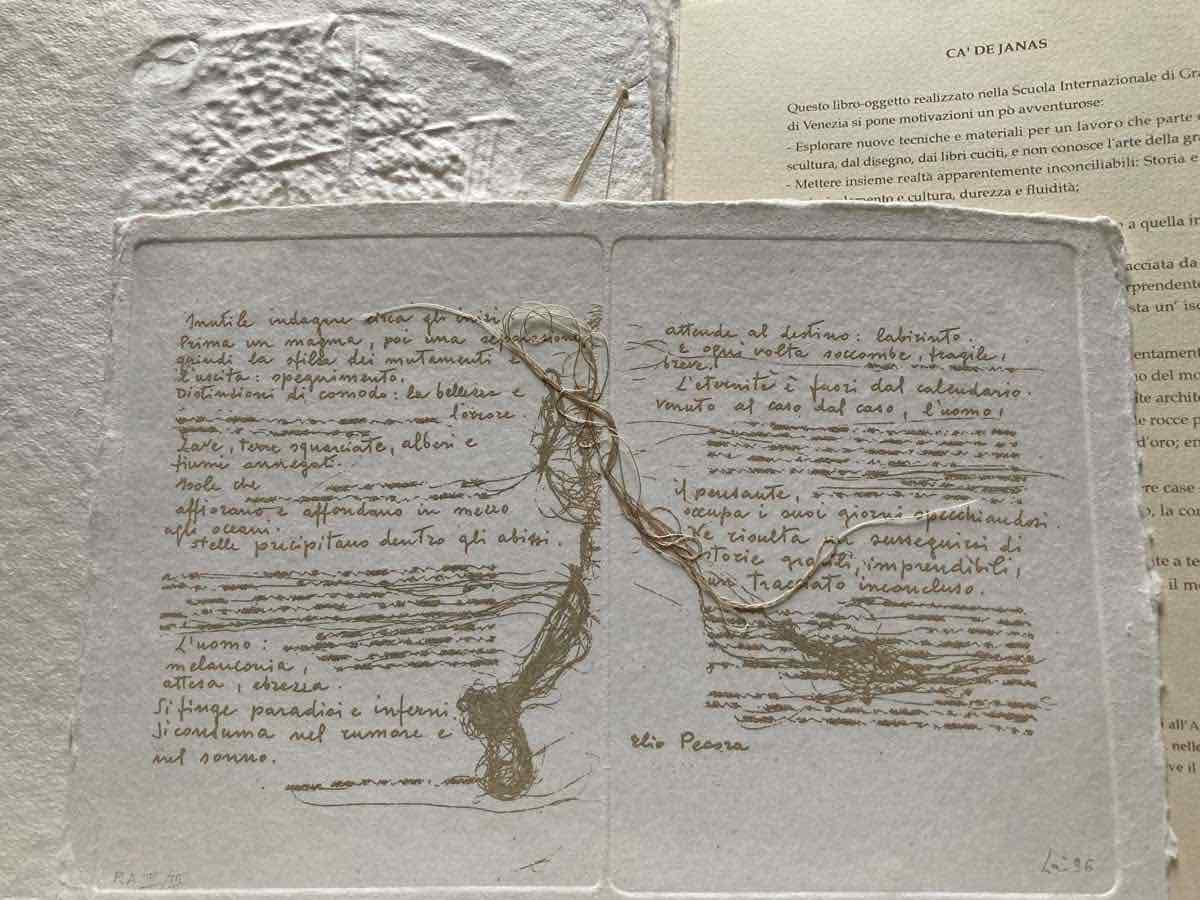 CA' DE JANAS
Questo libro-oggetto realizzato nella Scuola Internazionale di Gra
di Venezia si pone motivazioni un pò avventurose:
- Esplorare nuove tecniche e materiali per un lavoro che parte
scultura, dal disegno, dai libri cuciti, e non conosce l'arte della gra
- Mettere insieme realtà apparentemente inconciliabili: Storia e
e cultura, durezza e fluidità;
a quella in
acciata da
rprendente
sta un' iso
entament
no del mo
ite archite
le rocce p
d'oro; en
ere case
o, la con
ite a te
il m
all'A
nelle
ve il
Inutile indagare circa gli inizi
Prima un magma, poi una separazione,
quindi la sfilza dei mutamenti e
l'uscita: spegnimento.
Distinzioni di comodo: la bellezza e
l'orrore.
Lave, terre squarciate, alberi e
fiumi annegati.
Isole che
affiorano e affondano in mezzo
agli oceani.
Stelle precipitano dentro gli abissi.
L'uomo:
melanconia,
attesa, ebrezza.
Si finge paradisi e inferni.
Si consuma nel rumore e
nel sonno.
attende al destino: labirinto.
E ogni volta soccombe, fragile,
breve.
L'eternità è fuori dal calendario.
Venuto al caso dal caso, l'uomo,
il pensante,
occupa i suoi giorni specchiandosi.
Ne risulta un susseguirsi di
storie gracili, imprendibili,
un tracciato inconcluso.
Elio Pecora
P.A.
Lai 96